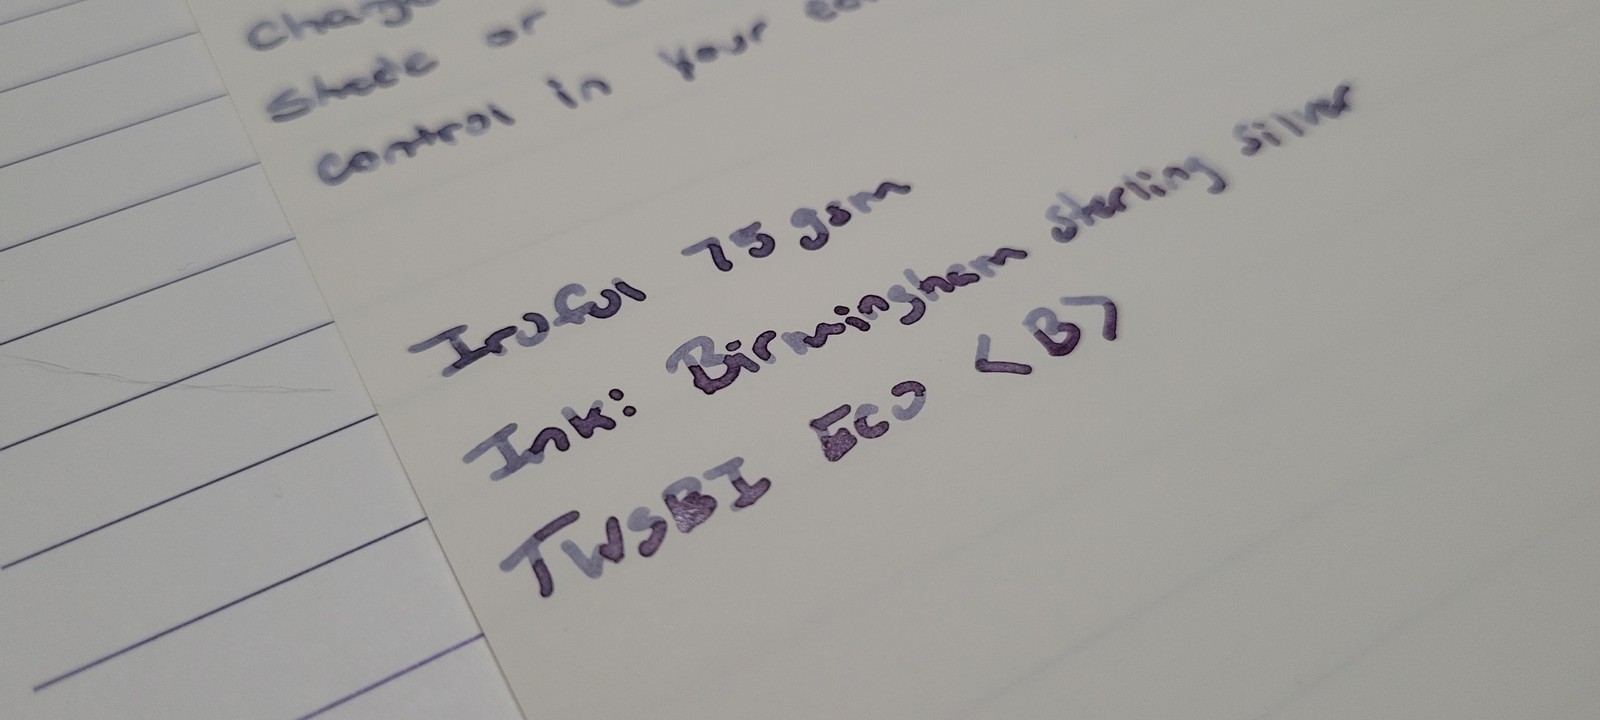 Change
Shade or
control in your
Iroful 75 gsm
Ink: Birmingham sterling silver
TWSBI Eco <B>